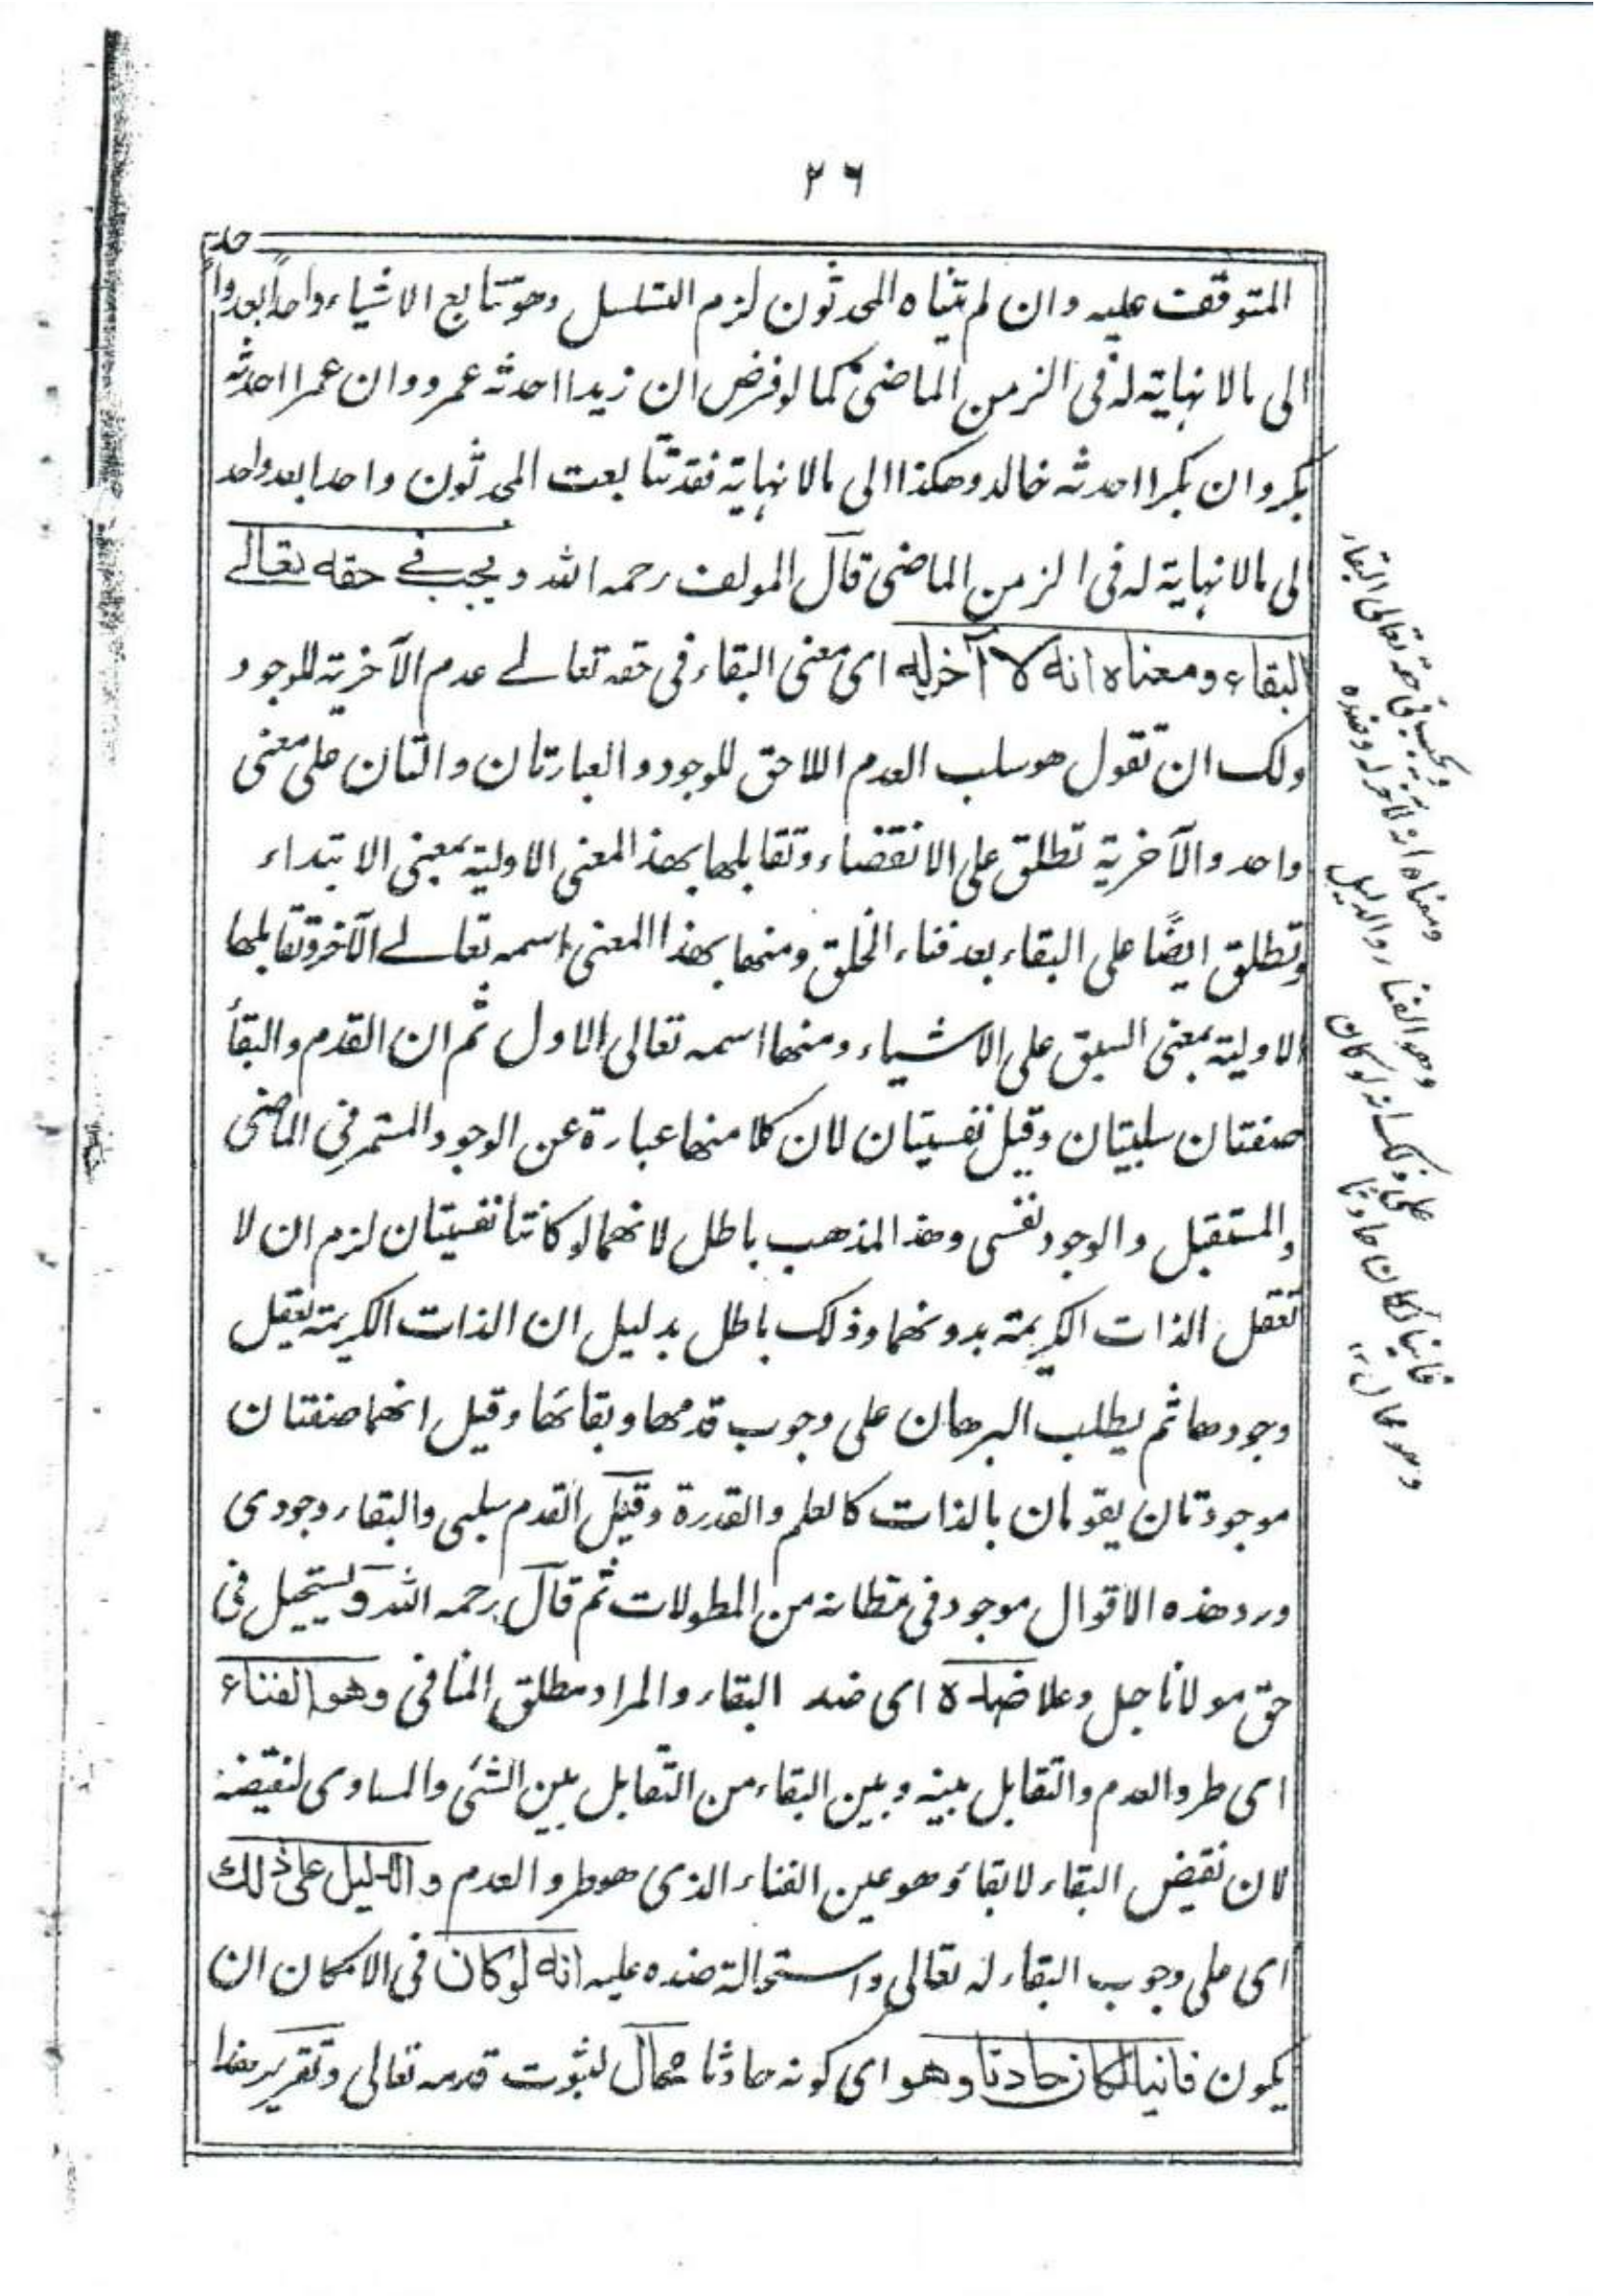 ٢٦
المتوقف عليه وان لم تتناه المحدثون لزم التسلسل وهو تتابع الاشياء واحدًا بعد واحد
الى مالا نهاية له فى الزمن الماضى كما لو فرض ان زيدا احدثه عمرو وان عمرا احدثه
بكر وان بكرا احدثه خالد وهكذا الى مالا نهاية فقد تتابعت المحدثون واحدا بعد واحد
الى مالا نهاية له فى الزمن الماضى قال المولف رحمه الله ويجب فے حقه تعالے
البقاء ومعناه انه لا آخر له اى معنى البقاء فى حقه تعالے عدم الآخرية للوجود
ولك ان تقول هو سلب العدم اللاحق للوجود والعبارتان دالتان على معنى
واحد والآخرية تطلق على الانقضاء وتقابلها بهذا المعنى الاولية بمعنى الابتداء
وتطلق ايضًا على البقاء بعد فناء الخلق ومنها بهذا المعنى اسمه تعالے الآخر وتقابلها
الاولية بمعنى السبق على الاشياء ومنها اسمه تعالى الاول ثم ان القدم والبقأ
صفتان سلبيتان وقيل نفسيتان لان كلا منها عبارة عن الوجود المستمر فى الماضى
والمستقبل والوجود نفسى وهذا المذهب باطل لانهما لو كانتا نفسيتان لزم ان لا
تعقل الذات الكريمة بدونهما وذلك باطل بدليل ان الذات الكريمة يعقل
وجودها ثم يطلب البرهان على وجوب قدمها وبقائها وقيل انهما صفتان
موجودتان يقومان بالذات كالعلم والقدرة وقيل القدم سلبى والبقاء وجودى
ورد هذه الاقوال موجود فى مظانه من المطولات ثم قال رحمه الله ويستحيل فى
حق مولانا جل وعلا ضده اى ضد البقاء والمراد مطلق المنافى وهو الفناء
اى طرو العدم والتقابل بينه وبين البقاء من التقابل بين الشئ والمساوى لنقيضه
لان نقيض البقاء لا بقاء وهو عين الفناء الذى هو طرو العدم والدليل على ذلك
اى على وجوب البقاء له تعالى واستحالة ضده عليه انه لو كان فى الامكان ان
يكون فانيا لكان حادثا وهو اى كونه حادثا محال لثبوت قدمه تعالى وتقرير هذا
ويجب فى حقه تعالى البقاء
ومعناه انه لا آخر له وضده
وهو الفناء والدليل
على ذلك انه لو كان
فانيا لكان حادثا
وهو محال ١٢